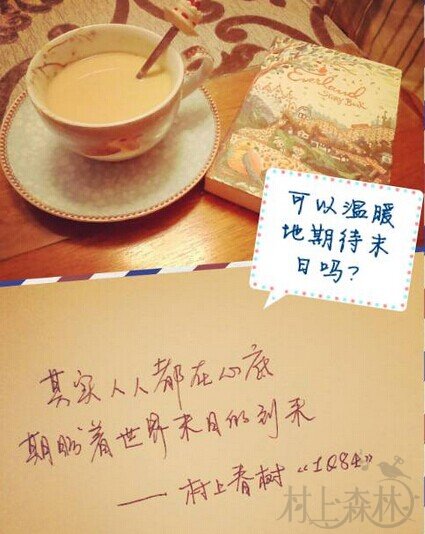 Diary Book
可以温暖
地期待末
日吗?
其实人人都在心底
期盼着世界末日的到来
——村上春树“1Q84”
村上森林